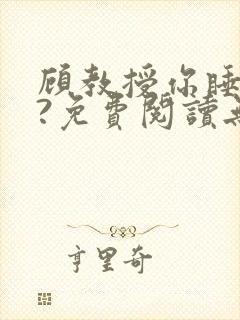 顾教授你睡
?免費閱讀無
亨里奇